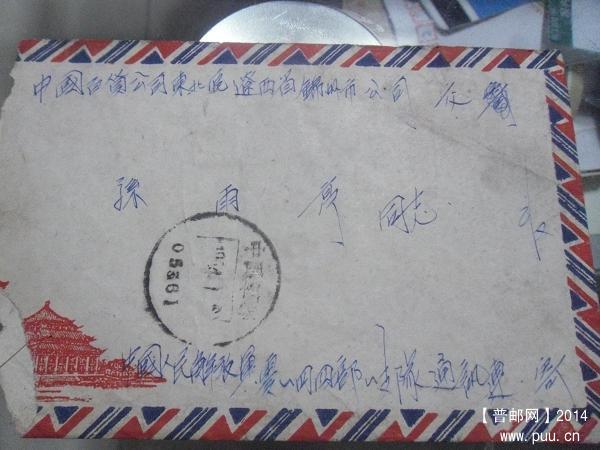 中國百貨公司東北區遼西省錦州市公司
孫雨 同志
05361
中國人民解放軍 一四四部 隊通訊連 寄
【普邮网】2014
www.puu.cn